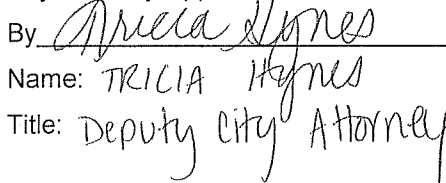 By Tricia Hynes
Name: TRICIA Hynes
Title: Deputy City Attorney